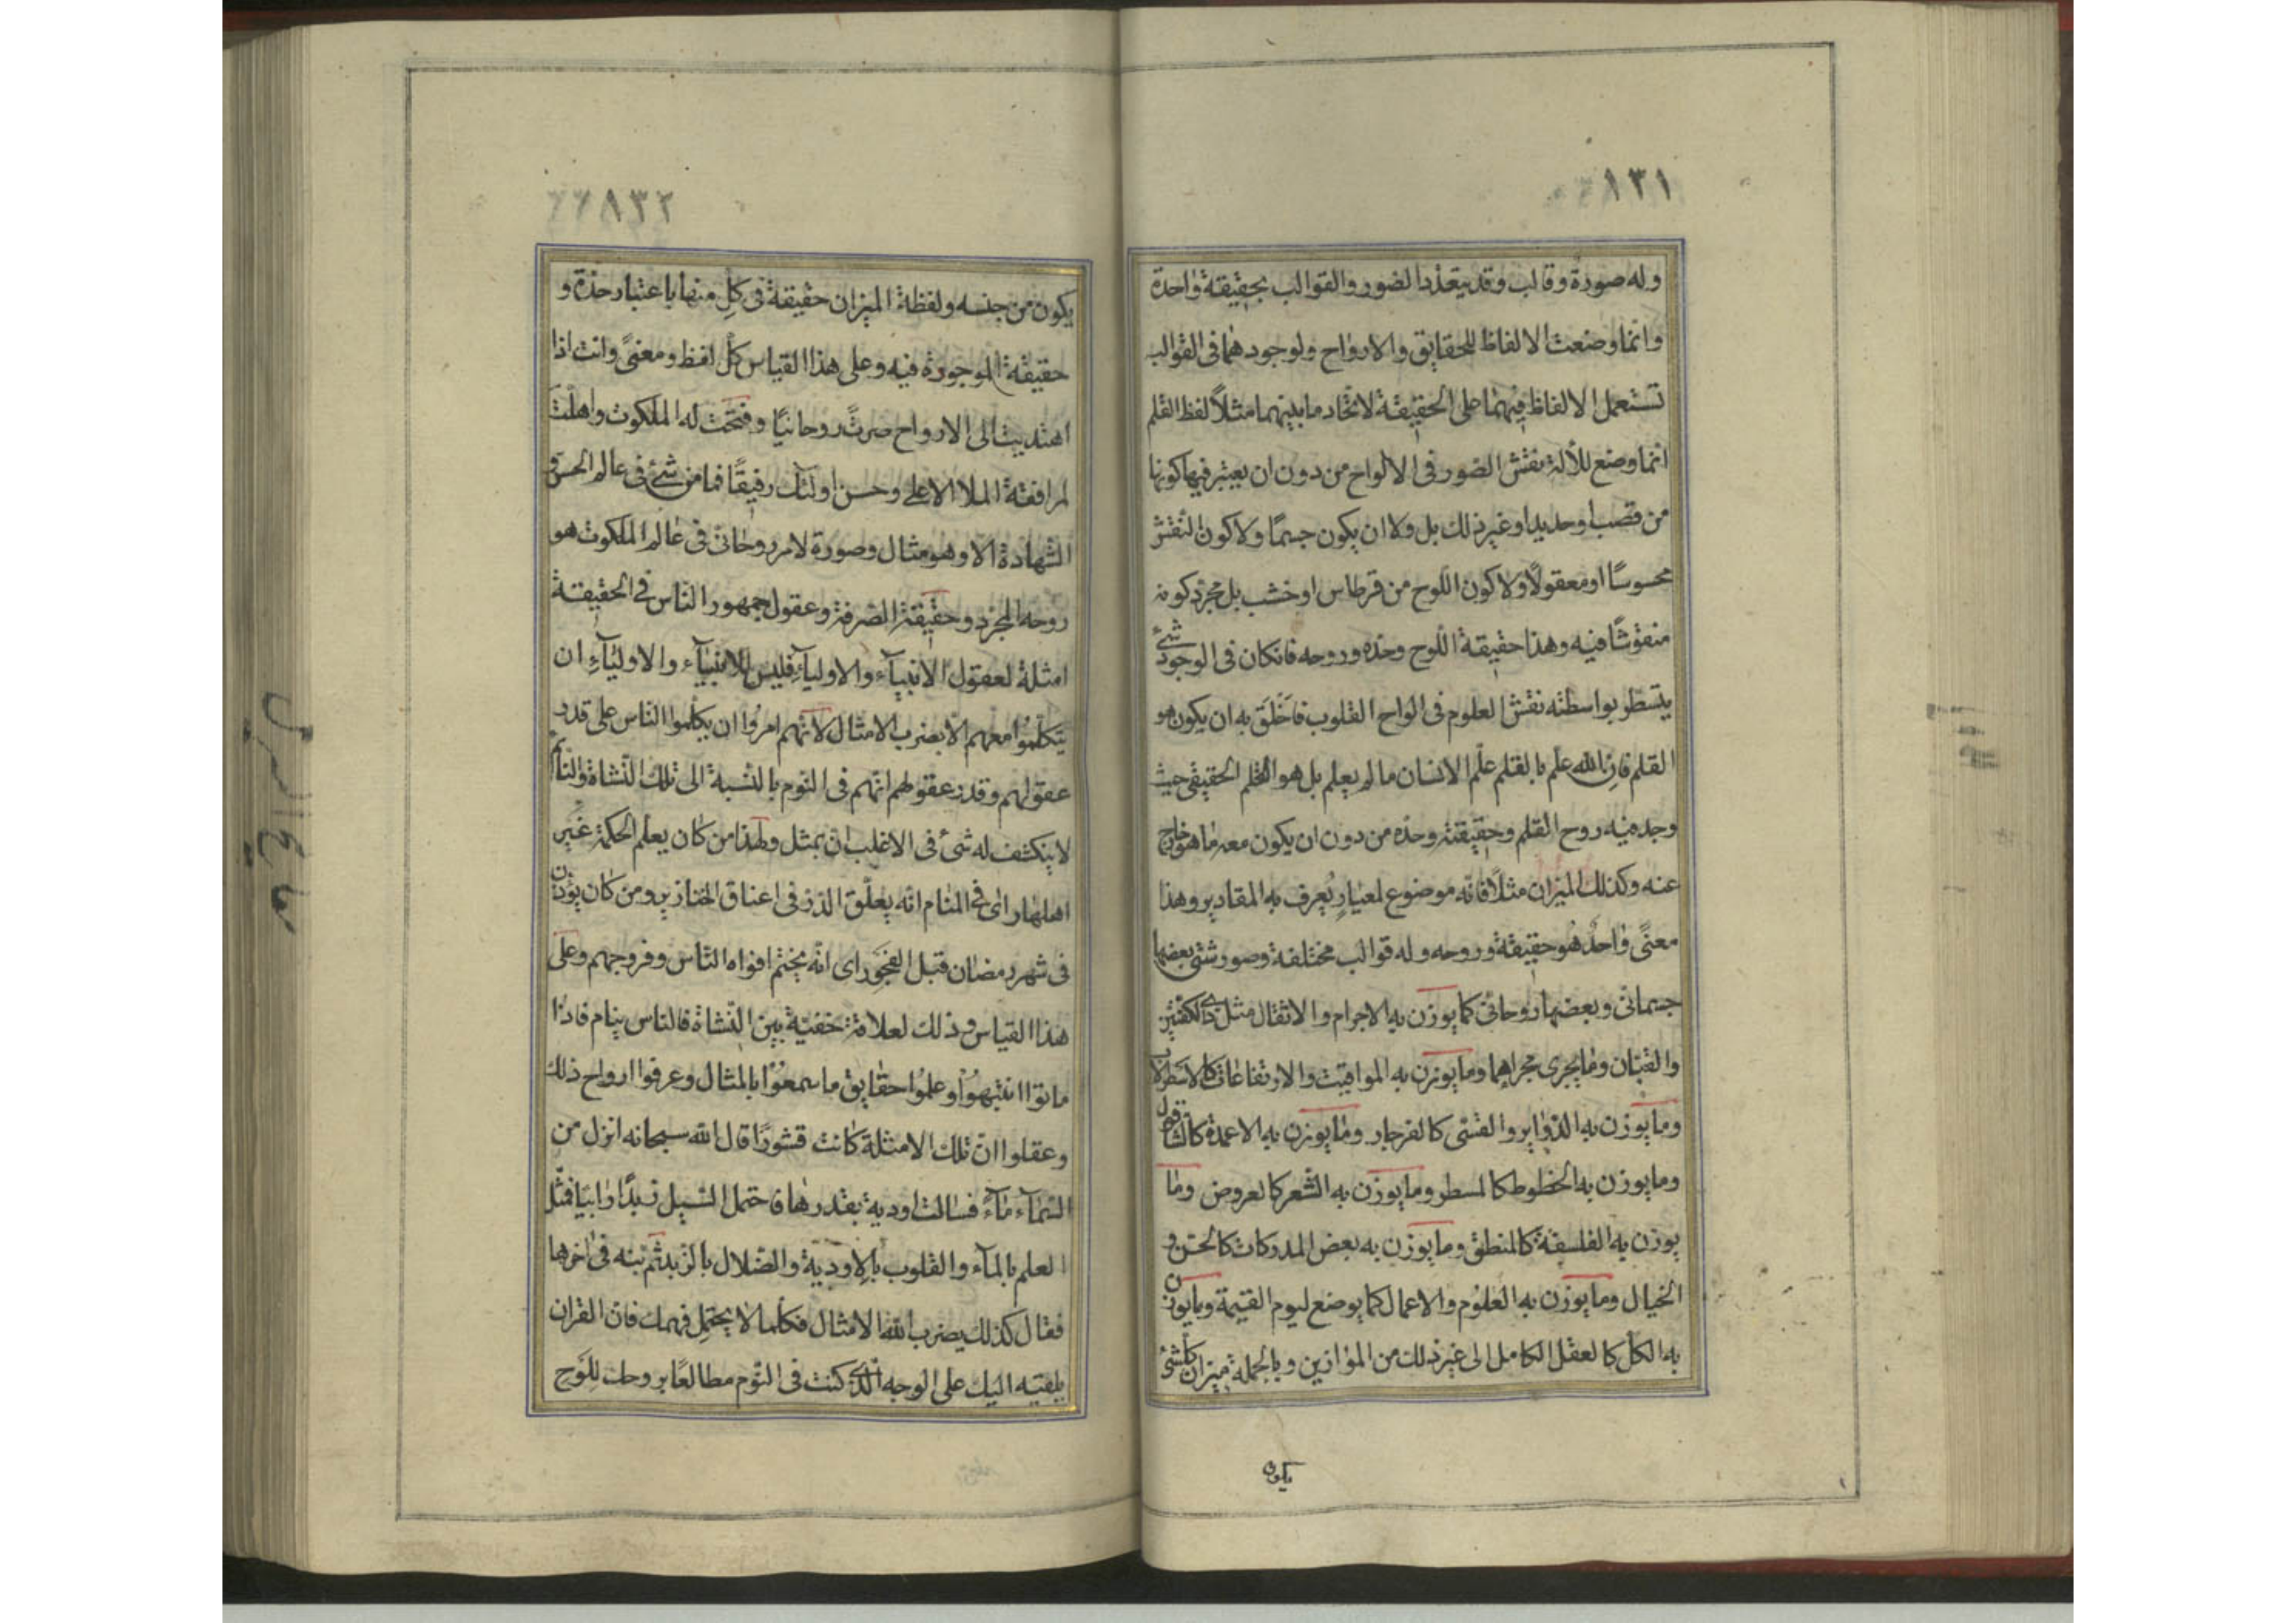 ١٣١
وله صورة وقالب وقد يتعدد الصور والقوالب بحقيقة واحدة
وانما وضعت الالفاظ للحقايق والارواح ولوجودهما فى القوالب
تستعمل الالفاظ فيهما على الحقيقة لاتحاد ما بينهما مثلاً لفظ القلم
انما وضع لألة نقش الصور فى الالواح من دون ان يعتبر فيها كونها
من قصب او حديد او غير ذلك بل ولا ان يكون جسمًا ولا كون النقش
محسوسًا او معقولًا ولا كون اللوح من قرطاس او خشب بل مجرد كونه
منقوشًا فيه وهذا حقيقة اللوح وحده وروحه فانكان فى الوجود شئ
يتسطر بواسطته نقش العلوم فى الواح القلوب فاخلق به ان يكون هو
القلم فان الله علم بالقلم علّم الانسان ما لم يعلم بل هو القلم الحقيقى حيث
وجد فيه روح القلم وحقيقته وحده من دون ان يكون معه ما هو خارج
عنه وكذلك الميزان مثلًا فانه موضوع لمعيار يُعرف به المقادير وهذا
معنًى واحد هو حقيقة وروحه وله قوالب مختلفة وصور شتى بعضها
جسمانى وبعضها روحانى كما يوزن به الاجرام والاثقال مثل ذى الكفتين
والقبّان وما يجرى مجراهما وما يوزن به المواقيت والارتفاعات كالاسطرلاب
وما يوزن به الدواير والقسّى كالفرجار وما يوزن به الاعمدة كالشاقول
وما يوزن به الخطوط كالمسطر وما يوزن به الشعر كالعروض وما
يوزن به الفلسفة كالمنطق وما يوزن به بعض المدركات كالحسّ و
الخيال وما يوزن به العلوم والاعمال كما يوضع ليوم القيمة وما يوزن
به الكل كالعقل الكامل الى غير ذلك من الموازين وبالجملة ميزان كل شئ
يكون
٨٣٢
يكون من جنسه ولفظة الميزان حقيقة فى كلٍ منها باعتبار حدّه و
حقيقة الموجودة فيه وعلى هذا القياس كل لفظ ومعنىً وانت اذا
اهتديت الى الارواح صرتَ روحانيًا وفتحت له الملكوت واهلت
لمرافقة الملا الاعلى وحسن اولئك رفيقًا فما من شئ فى عالم الحس و
الشهادة الا وهو مثال وصورة لامر روحانى فى عالم الملكوت هو
روحه المجرد وحقيقته الصرفة وعقول جمهور الناس فى الحقيقة
امثلة لعقول الانبيآء والاوليآء فليس للانبيآء والاوليآء ان
يتكلّموا معهم الا بضرب الامثال لانهم امرُوا ان يكلموا الناس على قدر
عقولهم وقدر عقولهم انهم فى النوم بالنسبة الى تلك النشاة والنائم
لا ينكشف له شئ فى الاغلب الا بمثل ولهذا من كان يعلم الحكمة غير
اهلها راى فى المنام انه يعلّق الدر فى اعناق الخنازير ومن كان يؤذن
فى شهر رمضان قبل الفجر راى انه يختم افواه الناس وفروجهم وعلى
هذا القياس وذلك لعلاقة خفية بين النشاة فالناس ينام فاذا
ماتوا انتبهوُا وعلموُا حقايق ما سمعوُا بالمثال وعرفوا ارواح ذلك
وعقلوا ان تلك الامثلة كانت قشورًا قال الله سبحانه انزل من
السّمآء مآءً فسالت اودية بقدرها فاحتمل السّيل زبدًا رابيًا فمثّل
العلم بالمآء والقلوب بالاودية والضلال بالزبد ثم نبّه فى اخرها
فقال كذلك يضرب الله الامثال فكلما لا يحتمل فهمك فان القران
يلقيه اليك على الوجه الذى كنت فى النوم مطالعًا بروحك للوح